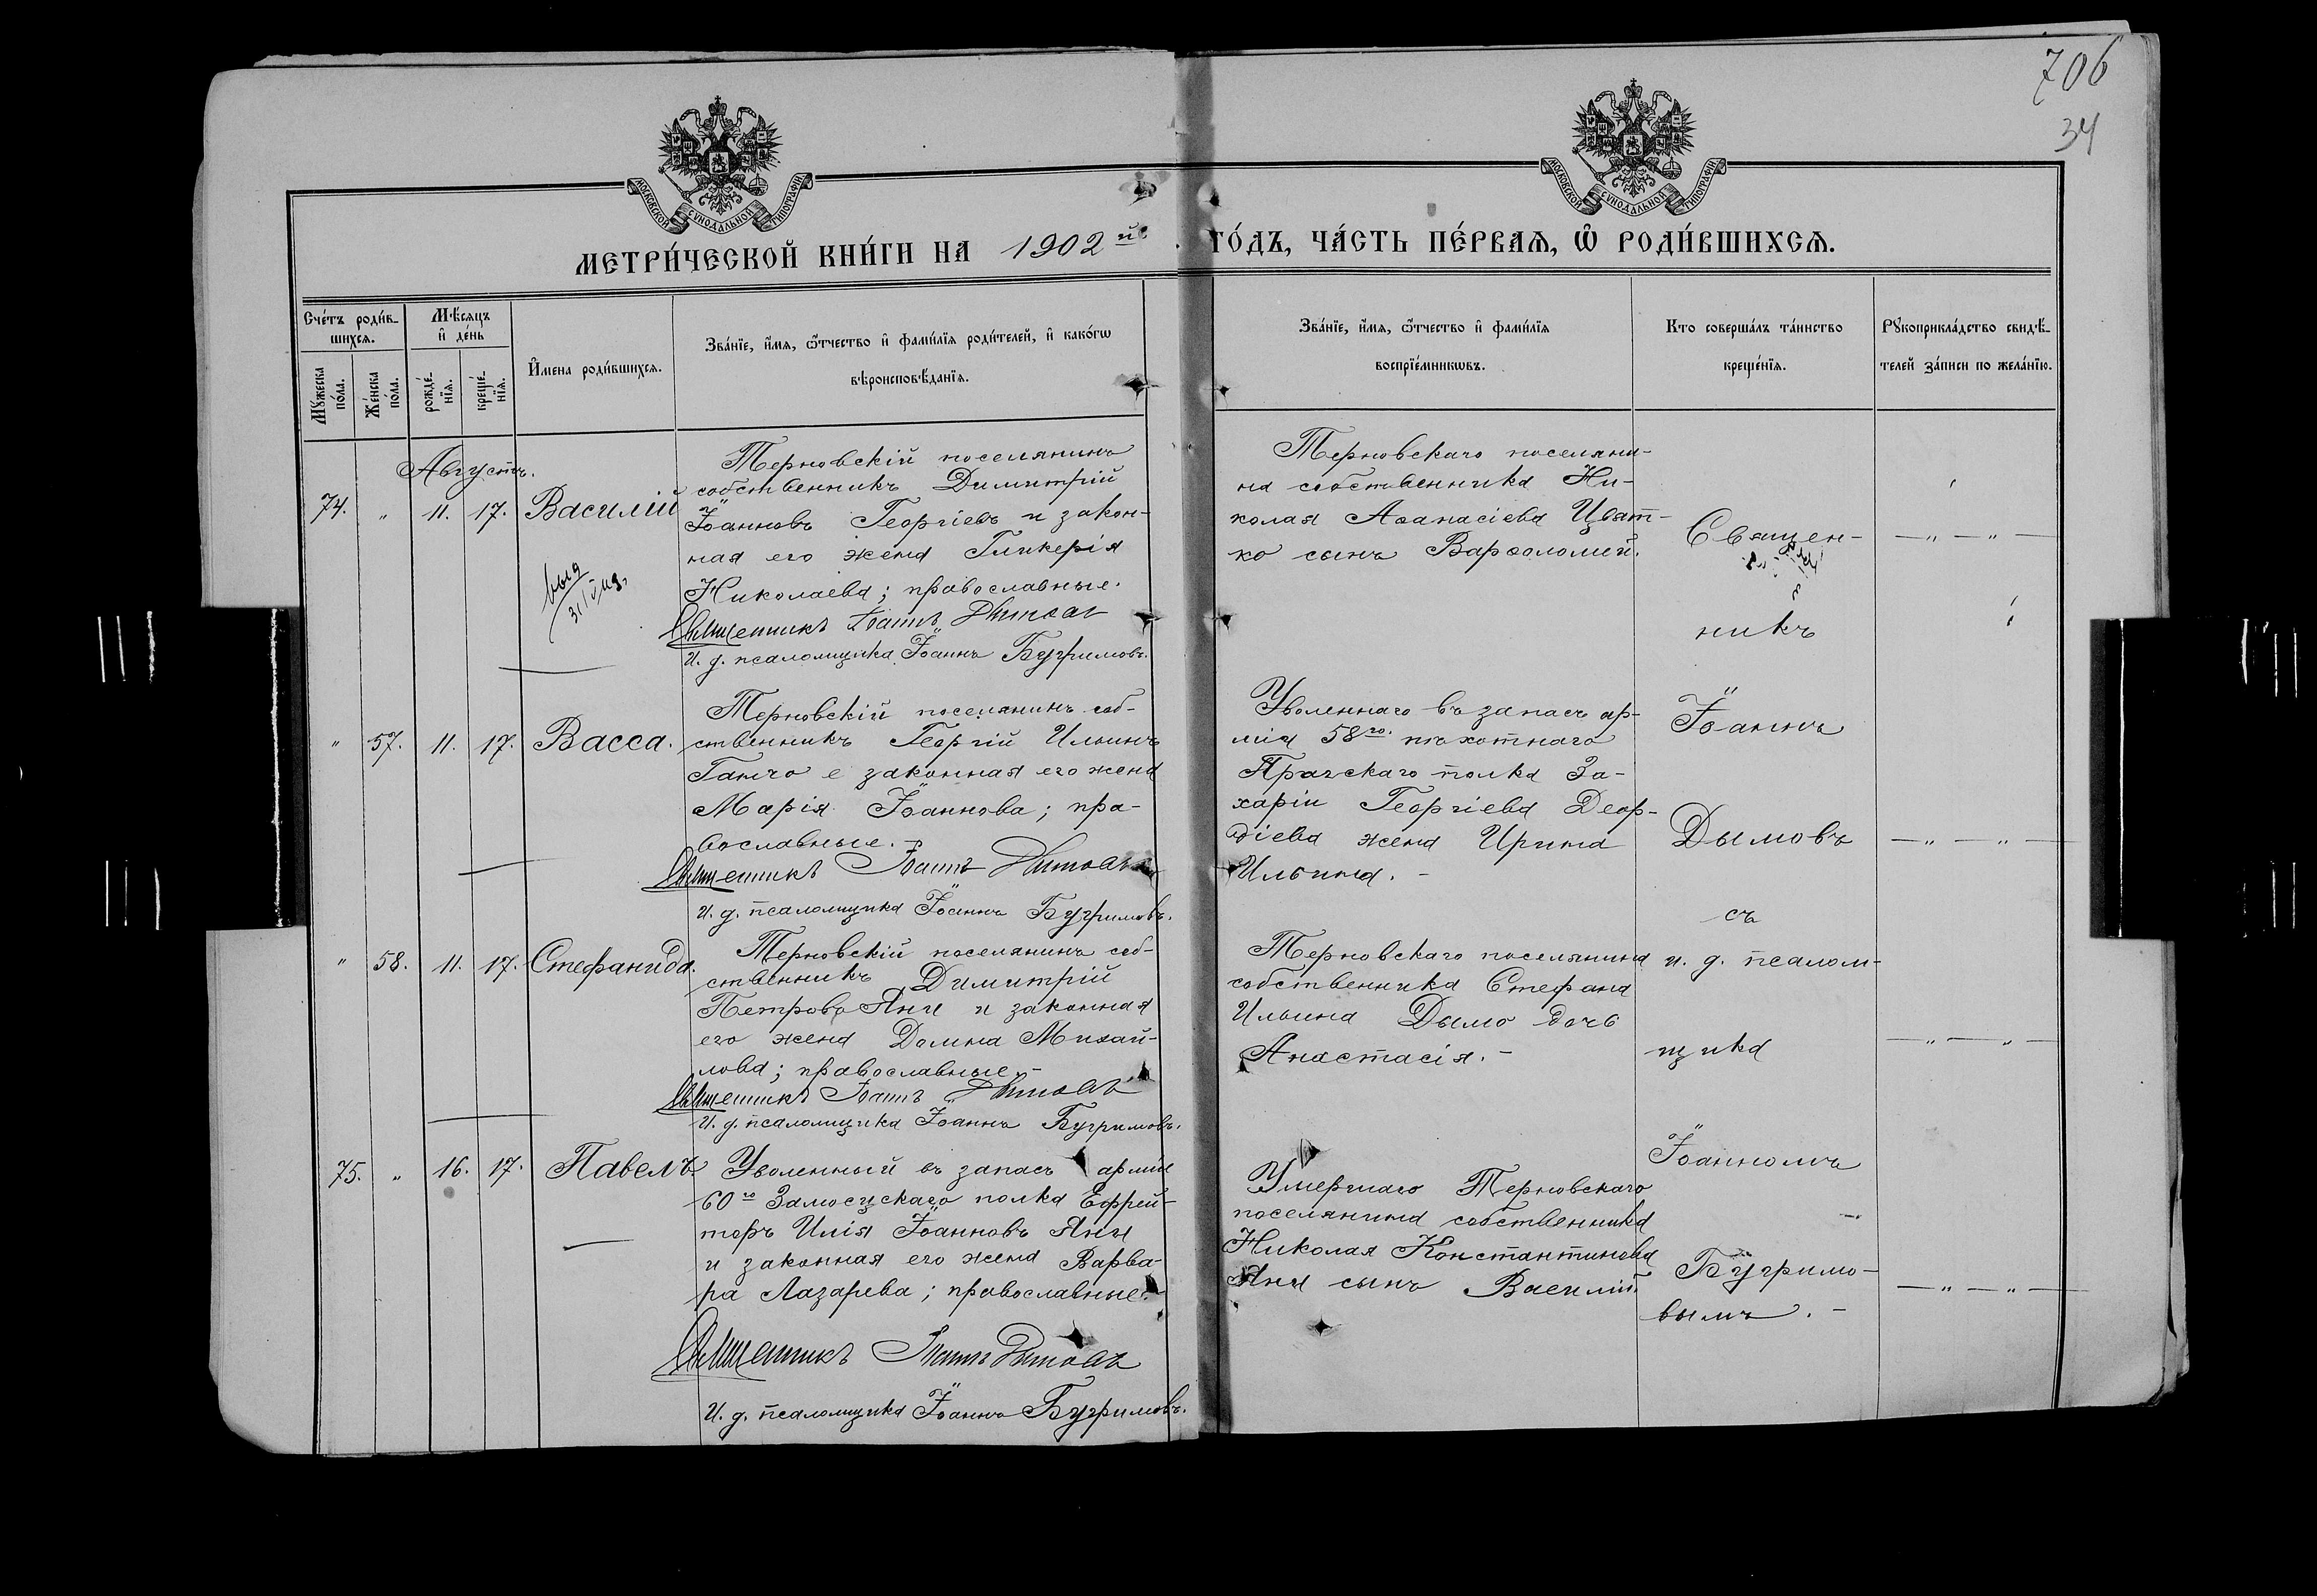 706
34
МОСКОВСКОЙ СѴНОДАЛЬНОЙ ТИПОГРАФІИ
МОСКОВСКОЙ СѴНОДАЛЬНОЙ ТИПОГРАФІИ
МЕТРИ́ЧЕСКОЙ КНИ́ГИ НА 1902 й
ГО́ДЪ, ЧА́СТЬ ПЕ́РВАѦ, Ѽ РОДИ́ВШИХСѦ.
Сче́тъ роди́в-
шихсѧ.
Мѣ́сѧцъ
и҆ де́нь
Мꙋ́жеска
по́ла.
Же́нска
по́ла.
рожде́-
нїѧ.
креще́-
нїѧ.
И҆мена роди́вшихсѧ.
Зва́нїе, и҆́мѧ, ѻ҆́тчество и҆ фами́лїѧ роди́телей, и҆ како́гѡ
вѣроисповѣ́данїѧ.
Зва́нїе, и҆́мѧ, ѻ҆́тчество и҆ фами́лїѧ
воспрїе́мникѡвъ.
Кто соверша́лъ та́инство
креще́нїѧ.
Рꙋкоприкла́дство свидѣ́-
телей за́писи по жела́нїю.
Августъ.
74. " 11. 17. Василій
выд
Терновскій поселянинъ
собственникъ Димитрій
Іоанновъ Георгіевъ и закон-
ная его жена Гликерія
Николаева; православные.
Священникъ Іоаннъ Дымовъ
И. д. псаломщика Іоаннъ Бугримовъ.
Терновскаго поселяни-
на собственника Ни-
колая Аѳанасіева Цват-
ко сынъ Варѳоломей.
Священ-
никъ
— " — " —
" 57. 11. 17. Васса.
Терновскій поселянинъ соб-
ственникъ Георгій Ильинъ
Ганчо е законная его жена
Марія Іоаннова; пра-
вославные.
Священникъ Іоаннъ Дымовъ
И. д. псаломщика Іоаннъ Бугримовъ.
Уволеннаго въ запасъ ар-
міи 58го. пѣхотнаго
Прагскаго полка За-
харіи Георгіева Деор-
діева жена Ирина
Ильина. -
Іоаннъ
Дымовъ
съ
— " — " —
" 58. 11. 17. Стефанида.
Терновскій поселянинъ соб-
ственникъ Димитрій
Петровъ Яни и законная
его жена Домна Михай-
лова; православные.-
Священникъ Іоаннъ Дымовъ
И. д. псаломщика Іоаннъ Бугримовъ.
Терновскаго поселянина
собственника Стефана
Ильина Дымо дочь
Анастасія. -
и. д. псалом-
щика
— " — " —
75. " 16. 17. Павелъ.
Уволенный въ запасъ арміи
60го Замосцскаго полка Ефрей-
торъ Илія Іоанновъ Яни
и законная его жена Варва-
ра Лазарева; православные.-
Священникъ Іоаннъ Дымовъ
И. д. псаломщика Іоаннъ Бугримовъ.
Умершаго Терновскаго
поселянина собственника
Николая Константинова
Яни сынъ Василій.
Іоанномъ
Бугримо-
вымъ. -
— " — " —